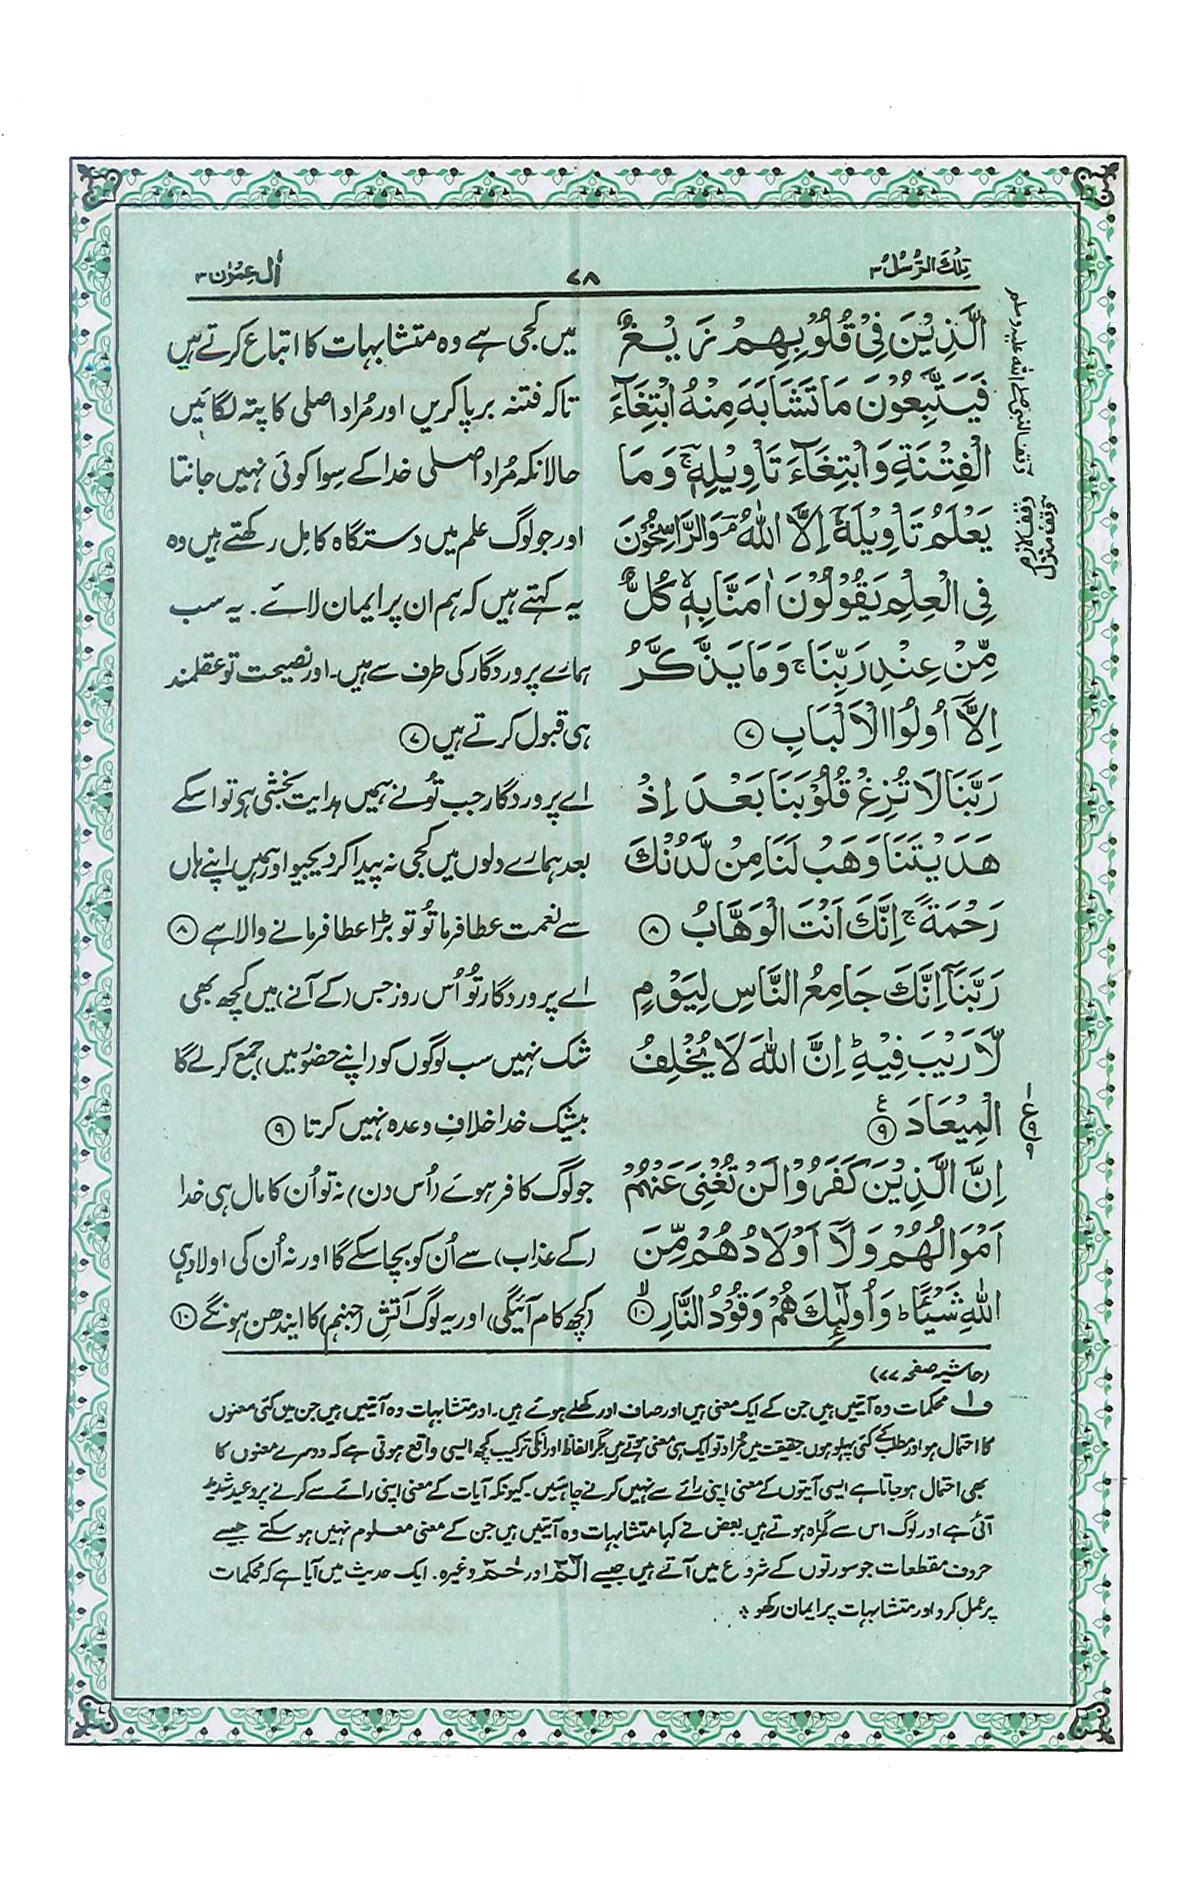 تِلْكَ الرُّسُلُ ۳
۷۸
اٰلِ عِمْرٰن ۳
الَّذِيْنَ فِيْ قُلُوْبِهِمْ زَيْغٌ
فَيَتَّبِعُوْنَ مَا تَشَابَهَ مِنْهُ ابْتِغَآءَ
الْفِتْنَةِ وَابْتِغَآءَ تَاْوِيْلِهٖ ۚ وَمَا
يَعْلَمُ تَاْوِيْلَهٗٓ اِلَّا اللّٰهُ ۘ وَالرَّاسِخُوْنَ
فِي الْعِلْمِ يَقُوْلُوْنَ اٰمَنَّا بِهٖ ۙ كُلٌّ
مِّنْ عِنْدِ رَبِّنَا ۚ وَمَا يَذَّكَّرُ
اِلَّآ اُولُوا الْاَلْبَابِ ۝۷
رَبَّنَا لَا تُزِغْ قُلُوْبَنَا بَعْدَ اِذْ
هَدَيْتَنَا وَهَبْ لَنَا مِنْ لَّدُنْكَ
رَحْمَةً ۚ اِنَّكَ اَنْتَ الْوَهَّابُ ۝۸
رَبَّنَآ اِنَّكَ جَامِعُ النَّاسِ لِيَوْمٍ
لَّا رَيْبَ فِيْهِ ؕ اِنَّ اللّٰهَ لَا يُخْلِفُ
الْمِيْعَادَ ۝۹
اِنَّ الَّذِيْنَ كَفَرُوْا لَنْ تُغْنِيَ عَنْهُمْ
اَمْوَالُهُمْ وَلَآ اَوْلَادُهُمْ مِّنَ
اللّٰهِ شَيْـًٔا ؕ وَاُولٰٓئِكَ هُمْ وَقُوْدُ النَّارِ ۝۱۰
میں کجی ہے وہ متشابہات کا اتباع کرتے ہیں
تاکہ فتنہ برپا کریں اور مُراد اصلی کا پتہ لگائیں
حالانکہ مُراد اصلی خدا کے سِوا کوئی نہیں جانتا
اور جو لوگ علم میں دستگاہ کامل رکھتے ہیں وہ
یہ کہتے ہیں کہ ہم ان پر ایمان لائے۔ یہ سب
ہمارے پروردگار کی طرف سے ہیں۔ اور نصیحت تو عقلمند
ہی قبول کرتے ہیں ۝۷
اے پروردگار جب تُونے ہمیں ہدایت بخشی ہے تو اسکے
بعد ہمارے دلوں میں کجی نہ پیدا کر دیجیو اور ہمیں اپنے ہاں
سے نعمت عطا فرما تُو تو بڑا عطا فرمانے والا ہے ۝۸
اے پروردگار تُو اُس روز جس (کے آنے) میں کچھ بھی
شک نہیں سب لوگوں کو (اپنے حضور میں) جمع کر لے گا
بیشک خدا خلافِ وعدہ نہیں کرتا ۝۹
جو لوگ کافر ہوئے (اُس دن) نہ تو اُن کا مال ہی خدا
(کے عذاب) سے اُن کو بچا سکے گا اور نہ اُن کی اولاد ہی
(کچھ کام آئیگی) اور یہ لوگ آتش (جہنم) کا ایندھن ہونگے ۝۱۰
وقف النبی صلے اللہ علیہ وسلم
وقف لازم
وقف منزل
ع
۹
(حاشیہ صفحہ ۷۷)
ف۱ محکمات وہ آیتیں ہیں جن کے ایک معنی ہیں اور صاف اور کھلے ہوئے ہیں۔ اور متشابہات وہ آیتیں ہیں جن میں کئی معنوں
کا احتمال ہو اور مطلب کے کئی پہلو ہوں حقیقت میں مُراد تو ایک ہی معنی ہوتے ہیں مگر الفاظ اور انکی ترکیب کچھ ایسی واقع ہوتی ہے کہ دوسرے معنوں کا
بھی احتمال ہو جاتا ہے ایسی آیتوں کے معنی اپنی رائے سے نہیں کرنے چاہئیں۔ کیونکہ آیات کے معنی اپنی رائے سے کرنے پر وعید شدید
آئی ہے اور لوگ اس سے گمراہ ہوتے ہیں بعض نے کہا متشابہات وہ آیتیں ہیں جن کے معنی معلوم نہیں ہو سکتے جیسے
حروف مقطعات جو سورتوں کے شروع میں آتے ہیں جیسے الٓمّٓ اور حٰمٓ وغیرہ۔ ایک حدیث میں آیا ہے کہ محکمات
پر عمل کرو اور متشابہات پر ایمان رکھو ؞